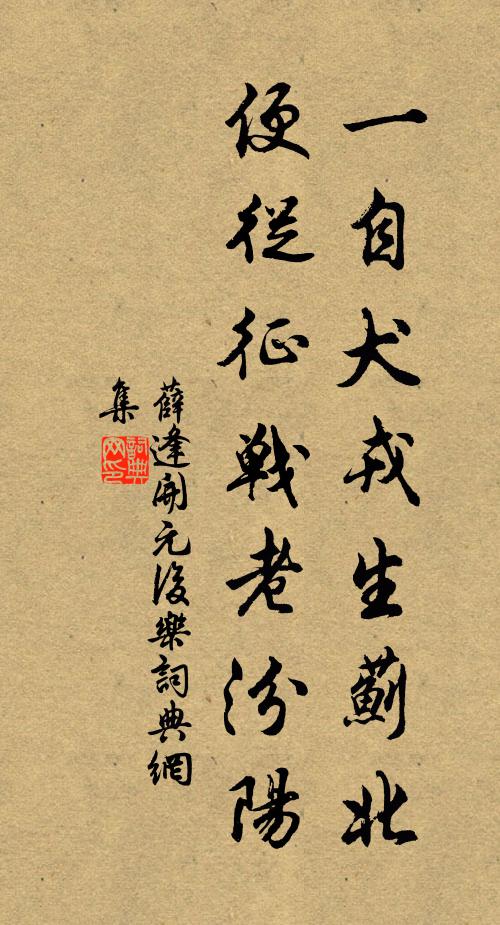 一自犬戎生薊北
便從征戰老汾陽
薛逢開元後樂詞典網
集
詞典網印